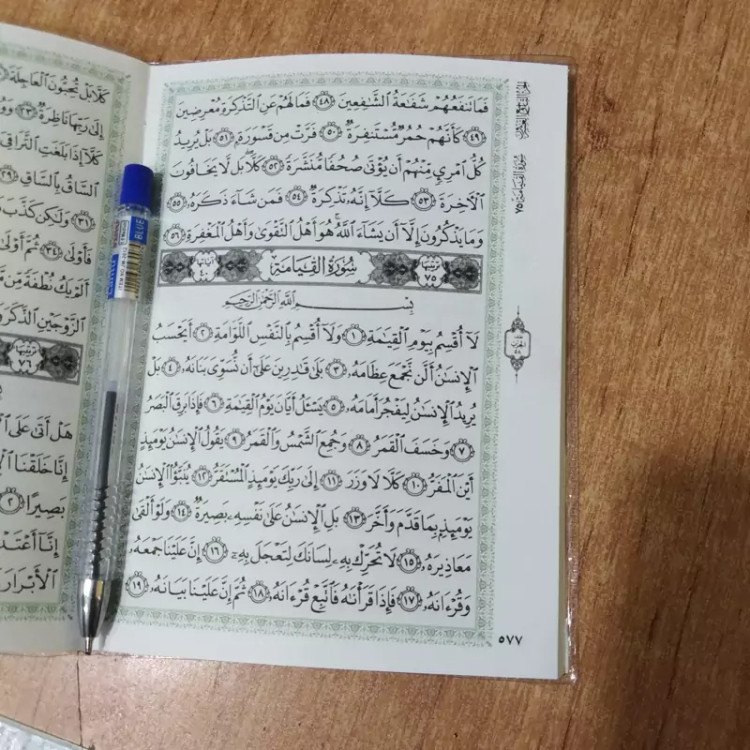 الجزء التاسع والعشرون
سورة القيامة ٧٥
فَمَا تَنفَعُهُمْ شَفَٰعَةُ ٱلشَّٰفِعِينَ ٤٨ فَمَا لَهُمْ عَنِ ٱلتَّذْكِرَةِ مُعْرِضِينَ
٤٩ كَأَنَّهُمْ حُمُرٌ مُّسْتَنفِرَةٌ ٥٠ فَرَّتْ مِن قَسْوَرَةٍ ٥١ بَلْ يُرِيدُ
كُلُّ ٱمْرِئٍ مِّنْهُمْ أَن يُؤْتَىٰ صُحُفًا مُّنَشَّرَةً ٥٢ كَلَّا بَل لَّا يَخَافُونَ
ٱلْءَاخِرَةَ ٥٣ كَلَّا إِنَّهُۥ تَذْكِرَةٌ ٥٤ فَمَن شَآءَ ذَكَرَهُۥ ٥٥
وَمَا يَذْكُرُونَ إِلَّا أَن يَشَآءَ ٱللَّهُ هُوَ أَهْلُ ٱلتَّقْوَىٰ وَأَهْلُ ٱلْمَغْفِرَةِ ٥٦
ترتيبها ٧٥ سُورَةُ القِيَامَةِ آياتها ٤٠
بِسْمِ ٱللَّهِ ٱلرَّحْمَٰنِ ٱلرَّحِيمِ
لَآ أُقْسِمُ بِيَوْمِ ٱلْقِيَٰمَةِ ١ وَلَآ أُقْسِمُ بِٱلنَّفْسِ ٱللَّوَّامَةِ ٢ أَيَحْسَبُ
ٱلْإِنسَٰنُ أَلَّن نَّجْمَعَ عِظَامَهُۥ ٣ بَلَىٰ قَٰدِرِينَ عَلَىٰٓ أَن نُّسَوِّىَ بَنَانَهُۥ ٤ بَلْ
يُرِيدُ ٱلْإِنسَٰنُ لِيَفْجُرَ أَمَامَهُۥ ٥ يَسْـَٔلُ أَيَّانَ يَوْمُ ٱلْقِيَٰمَةِ ٦ فَإِذَا بَرِقَ ٱلْبَصَرُ
٧ وَخَسَفَ ٱلْقَمَرُ ٨ وَجُمِعَ ٱلشَّمْسُ وَٱلْقَمَرُ ٩ يَقُولُ ٱلْإِنسَٰنُ يَوْمَئِذٍ
أَيْنَ ٱلْمَفَرُّ ١٠ كَلَّا لَا وَزَرَ ١١ إِلَىٰ رَبِّكَ يَوْمَئِذٍ ٱلْمُسْتَقَرُّ ١٢ يُنَبَّؤُا۟ ٱلْإِنسَٰنُ
يَوْمَئِذٍۭ بِمَا قَدَّمَ وَأَخَّرَ ١٣ بَلِ ٱلْإِنسَٰنُ عَلَىٰ نَفْسِهِۦ بَصِيرَةٌ ١٤ وَلَوْ أَلْقَىٰ
مَعَاذِيرَهُۥ ١٥ لَا تُحَرِّكْ بِهِۦ لِسَانَكَ لِتَعْجَلَ بِهِۦٓ ١٦ إِنَّ عَلَيْنَا جَمْعَهُۥ
وَقُرْءَانَهُۥ ١٧ فَإِذَا قَرَأْنَٰهُ فَٱتَّبِعْ قُرْءَانَهُۥ ١٨ ثُمَّ إِنَّ عَلَيْنَا بَيَانَهُۥ ١٩
٥٧٧
كَلَّا بَلْ تُحِبُّونَ ٱلْعَاجِلَةَ
إِلَىٰ رَبِّهَا نَاظِرَةٌ ٢٣
كَلَّآ إِذَا بَلَغَتِ ٱلتَّرَاقِىَ
ٱلسَّاقُ بِٱلسَّاقِ ٢٩
٣١ وَلَٰكِن كَذَّبَ
فَأَوْلَىٰ ٣٤ ثُمَّ أَوْلَىٰ
أَلَمْ يَكُ نُطْفَةً مِّن
ٱلزَّوْجَيْنِ ٱلذَّكَرَ
ترتيبها ٧٦
هَلْ أَتَىٰ عَلَى
إِنَّا خَلَقْنَا
بَصِيرًا ٢
إِنَّآ أَعْتَدْ
ٱلْأَبْرَارَ
BLUE